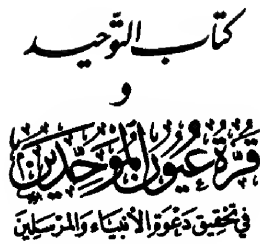 كتاب التوحيد
و
قرة عيون الموحدين
في تحقيق دعوة الأنبياء والمرسلين